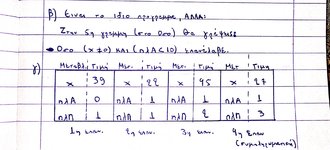 β) Είναι το ίδιο πρόγραμμα, ΑΛΛΑ:
Στην 5η γραμμή (στο Όσο) θα γράψουμε
• Όσο (x ≠ 0) και (πλΑ < 10) επανέλαβε.
γ) Μεταβλ Τιμή Μετ. Τιμή Μετ. Τιμή Μετ Τιμή
x 39 x 22 x 45 x 27
πλΑ 0 πλΑ 1 πλΑ 1 πλΑ 1
πλΠ 1 πλΠ 1 πλΠ 2 πλΠ 3
1η επαν 2η επαν 3η επαν 4η επαν